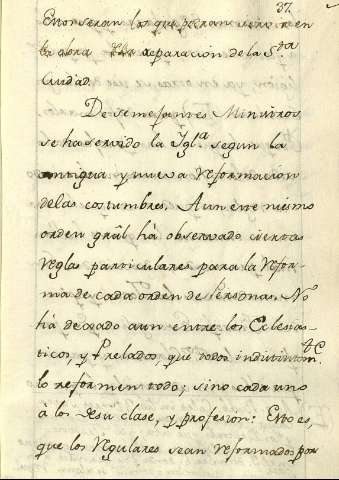 37.
Estos seran los que pueran servir en
la obra reparacion de la S.ta
Ciudad.
De semejantes Ministros
se ha servido la Igl.a segun la
antigua y nueva reformacion
de las costumbres. Aun este mismo
orden grâl hà observado ciertas
reglas particulares para la refor-
ma de cada orden de Personas. No
hà dexado aun entre los Eclesias-
ticos, y Prelados, que todos indistintam.te
lo reformen todo; sino cada uno
à los de su clase, y profesion: Esto es,
que los Regulares sean reformados por